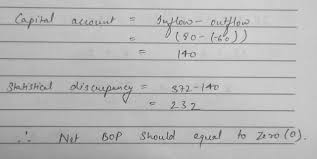 Capital account = Inflow - outflow
= (80 - (-60))
= 140
Statistical discrepancy = 372 - 140
= 232
∴ Net BOP should equal to Zero (0).